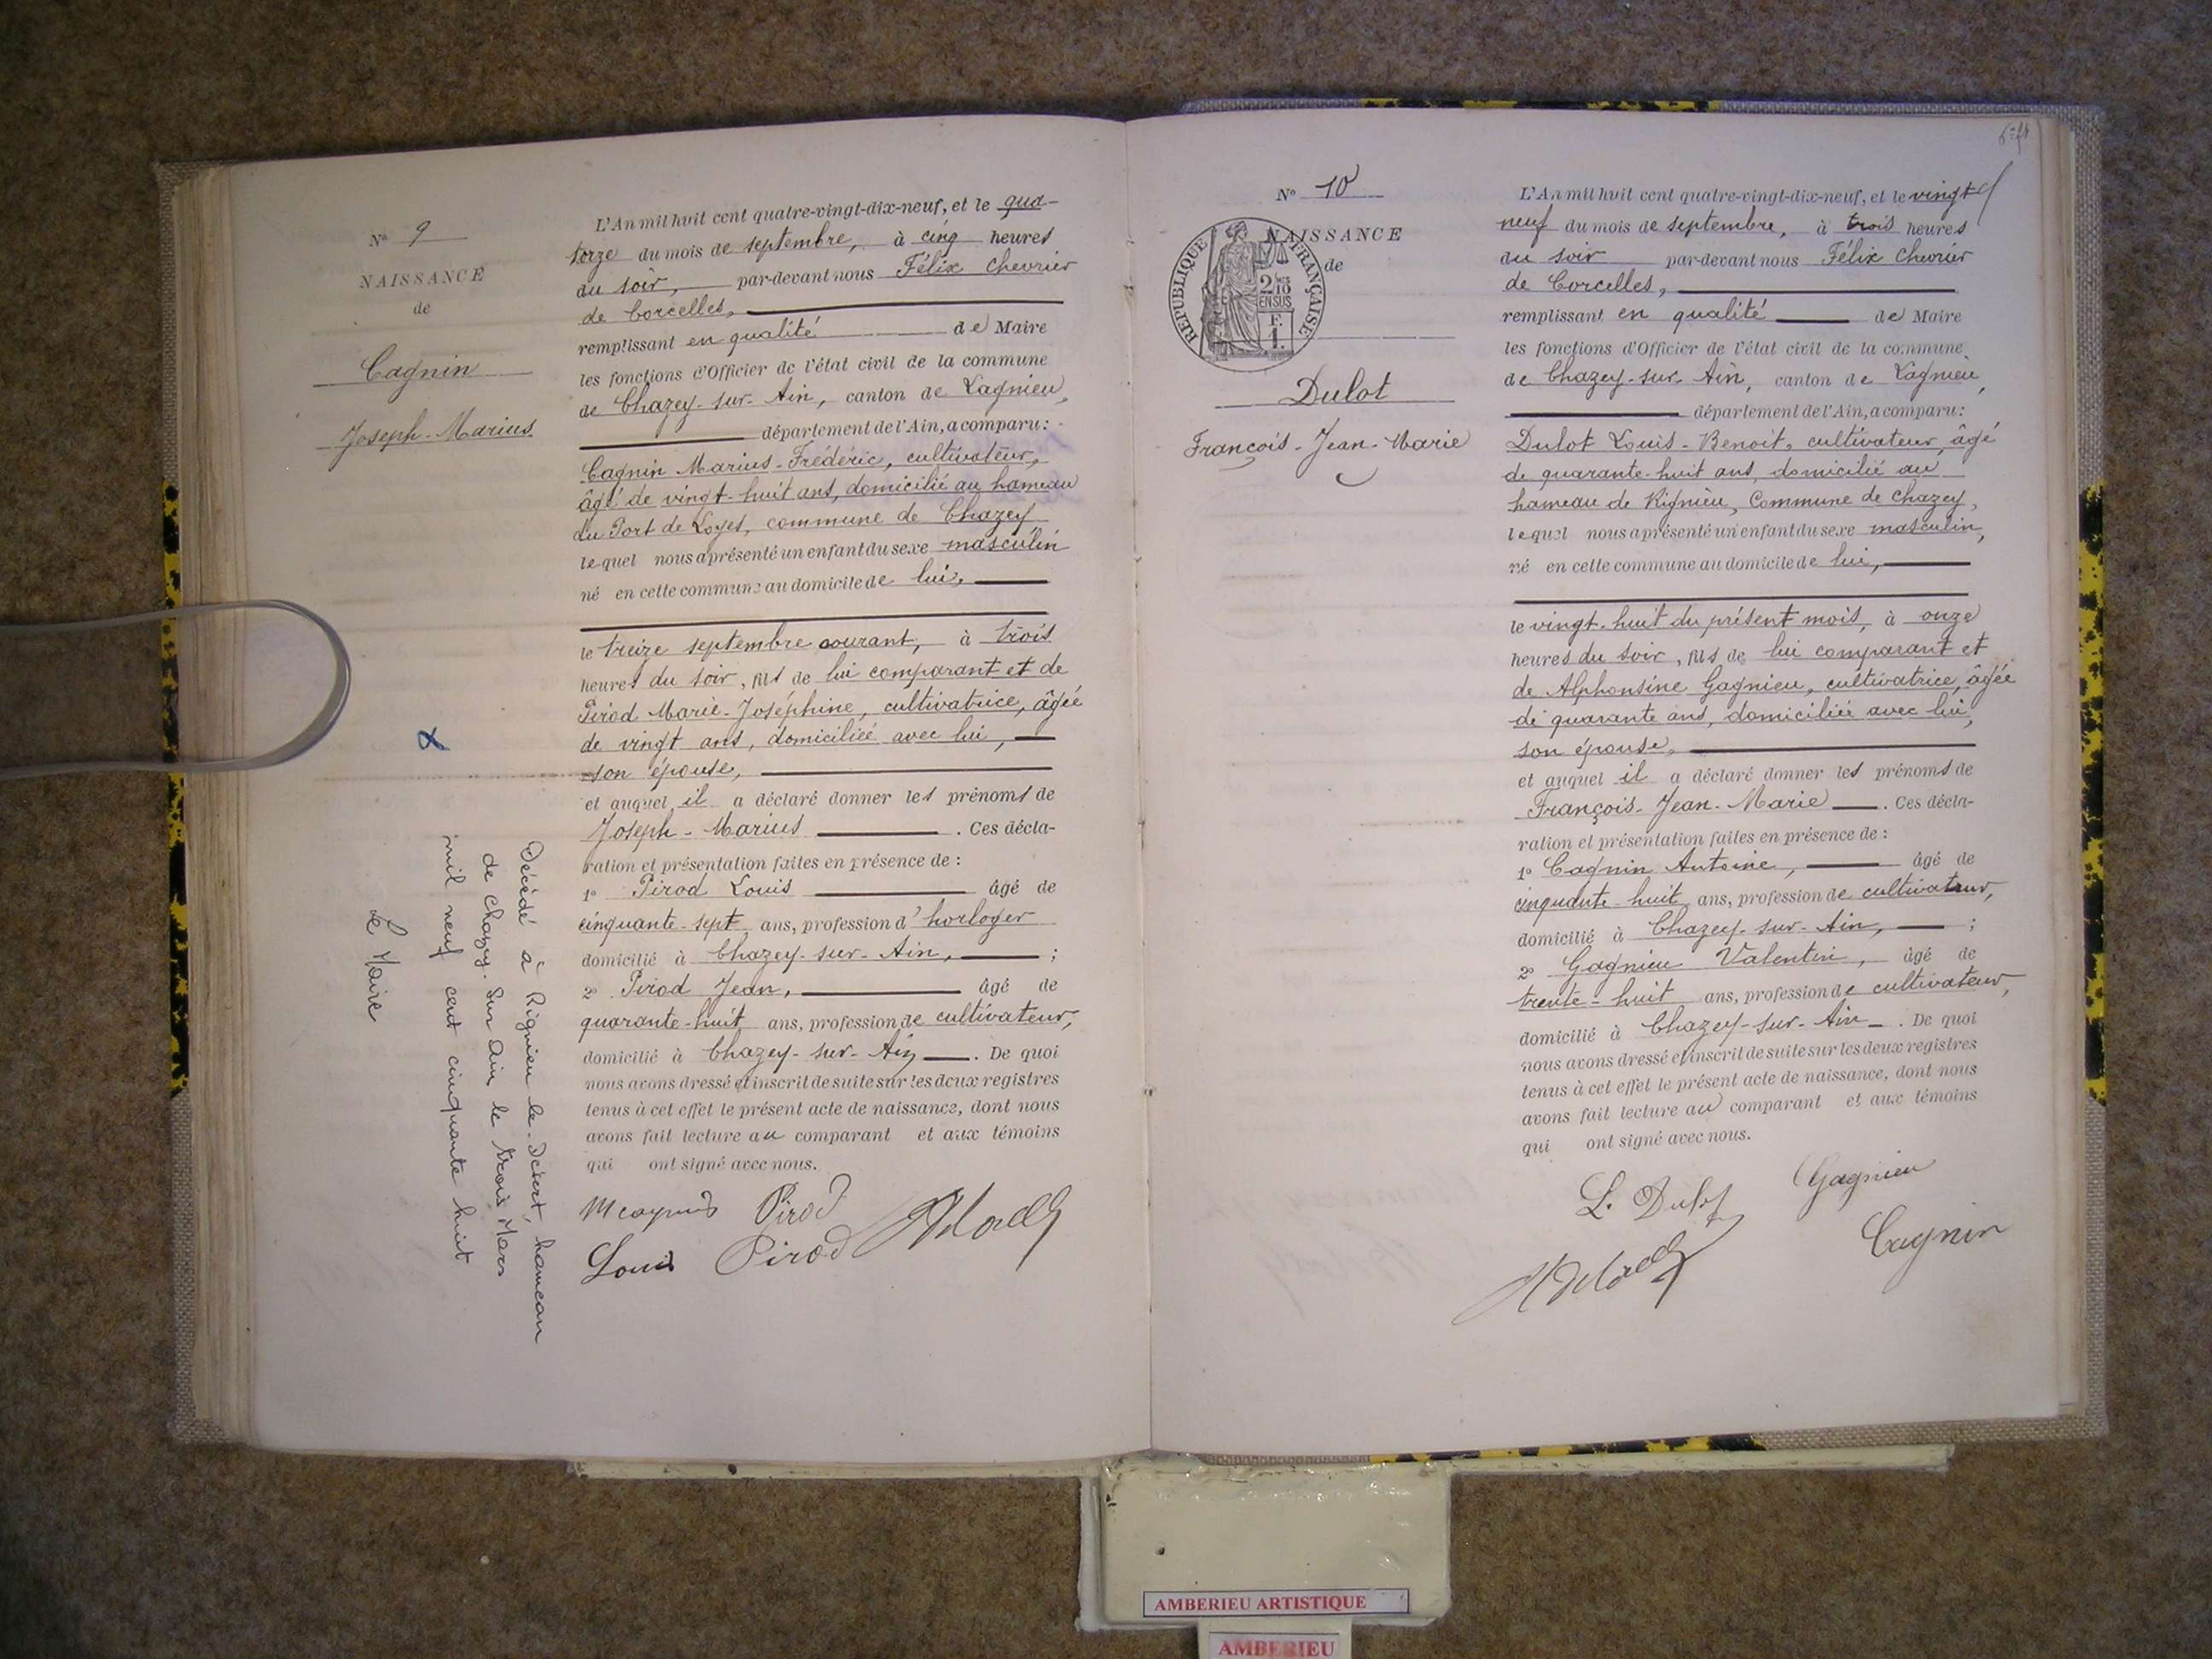 Nº 9
NAISSANCE
de
Cagnin
Joseph-Marius
L'An mil huit cent quatre-vingt-dix-neuf, et le qua-
torze du mois de septembre, à cinq heures
du soir, par-devant nous Félix Chevrier
de Corcelles,
remplissant en qualité de Maire
les fonctions d'Officier de l'état civil de la commune
de Chazey-sur-Ain, canton de Lagnieu,
département de l'Ain, a comparu:
Cagnin Marius-Frédéric, cultivateur,
âgé de vingt-huit ans, domicilié au hameau
du Port de Loyes, commune de Chazey
lequel nous a présenté un enfant du sexe masculin
né en cette commune au domicile de lui,
le treize septembre courant, à trois
heures du soir, fils de lui comparant et de
Pirod Marie-Joséphine, cultivatrice, âgée
de vingt ans, domiciliée avec lui,
son épouse,
et auquel il a déclaré donner les prénoms de
Joseph-Marius. Ces décla-
ration et présentation faites en présence de :
1º Pirod Louis âgé de
cinquante-sept ans, profession d'horloger
domicilié à Chazey-sur-Ain, ;
2º Pirod Jean, âgé de
quarante-huit ans, profession de cultivateur,
domicilié à Chazey-sur-Ain. De quoi
nous avons dressé et inscrit de suite sur les deux registres
tenus à cet effet le présent acte de naissance, dont nous
avons fait lecture au comparant et aux témoins
qui ont signé avec nous.
Pirod
Louis Pirod
Décédé à Rignieu le-Désert, hameau
de Chazey-sur Ain le trois Mars
mil neuf cent cinquante huit
Le Maire
Nº 10
NAISSANCE
de
REPUBLIQUE FRANÇAISE
2/10
EN SUS
F.
1.
Dulot
François-Jean-Marie
L'An mil huit cent quatre-vingt-dix-neuf, et le vingt
neuf du mois de septembre, à trois heures
du soir par-devant nous Félix Chevrier
de Corcelles,
remplissant en qualité de Maire
les fonctions d'Officier de l'état civil de la commune
de Chazey-sur-Ain, canton de Lagnieu,
département de l'Ain, a comparu:
Dulot Louis-Benoit, cultivateur, âgé
de quarante-huit ans, domicilié au
hameau de Rignieu, Commune de Chazey,
lequel nous a présenté un enfant du sexe masculin,
né en cette commune au domicile de lui,
le vingt-huit du présent mois, à onze
heures du soir, fils de lui comparant et
de Alphonsine Gagnieu, cultivatrice, âgée
de quarante ans, domiciliée avec lui,
son épouse,
et auquel il a déclaré donner les prénoms de
François-Jean-Marie. Ces décla-
ration et présentation faites en présence de :
1º Cagnin Antoine, âgé de
cinquante-huit ans, profession de cultivateur,
domicilié à Chazey-sur-Ain, ;
2º Gagnieu Valentin, âgé de
trente-huit ans, profession de cultivateur,
domicilié à Chazey-sur-Ain. De quoi
nous avons dressé et inscrit de suite sur les deux registres
tenus à cet effet le présent acte de naissance, dont nous
avons fait lecture au comparant et aux témoins
qui ont signé avec nous.
L. Dulot Gagnieu
Cagnin
AMBERIEU ARTISTIQUE
AMBERIEU